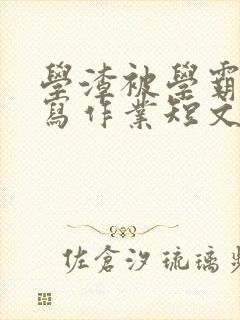 學渣被學霸
寫作業短文
佐倉汐琉璃